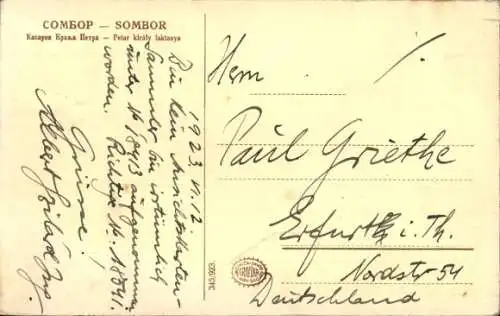 СОМБОР — SOMBOR
Касарна Краља Петра — Petar király laktanya
1923. VI. 2.
Bin kein Ansichtskarten-
Sammler bin irrtümlich
unter № 18413 aufgenommen
worden. Richtig № 18541.
Grüsse!
Albert
Herrn
Paul Griethe
Erfurt i. Th.
Nordstr 54
Deutschland